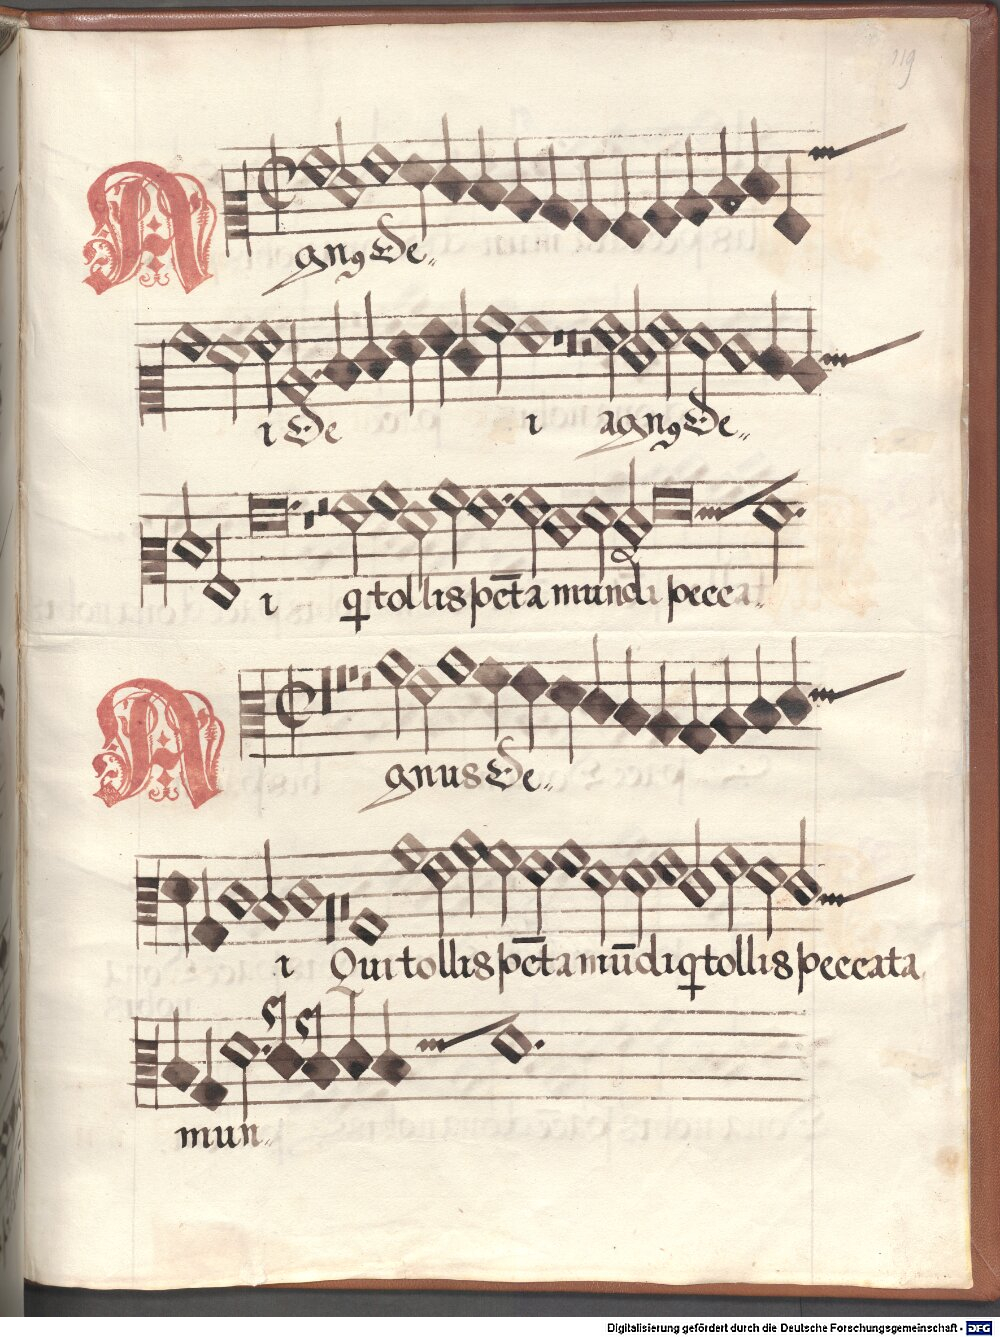 119
Agnꝰ De„
i De i agnꝰ De„
i ꝗ tollis pc̄ta mundi peccat„
Agnus De„
i Qui tollis pc̄ta mūdi ꝗ tollis peccata
mun„
Digitalisierung gefördert durch die Deutsche Forschungsgemeinschaft - DFG